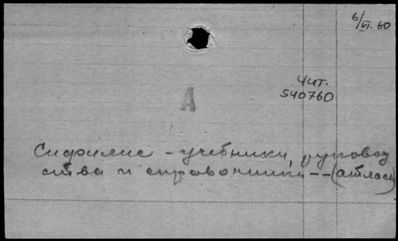 6/VI.60
Чит.
540760
А
Сифилис - учебники, руковод
ства и справочники -- (атласы)